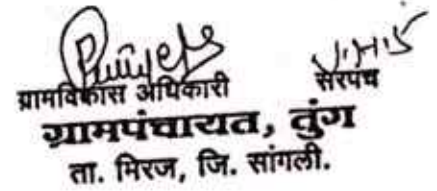 ग्रामविकास अधिकारी सरपंच
ग्रामपंचायत, तुंग
ता. मिरज, जि. सांगली.